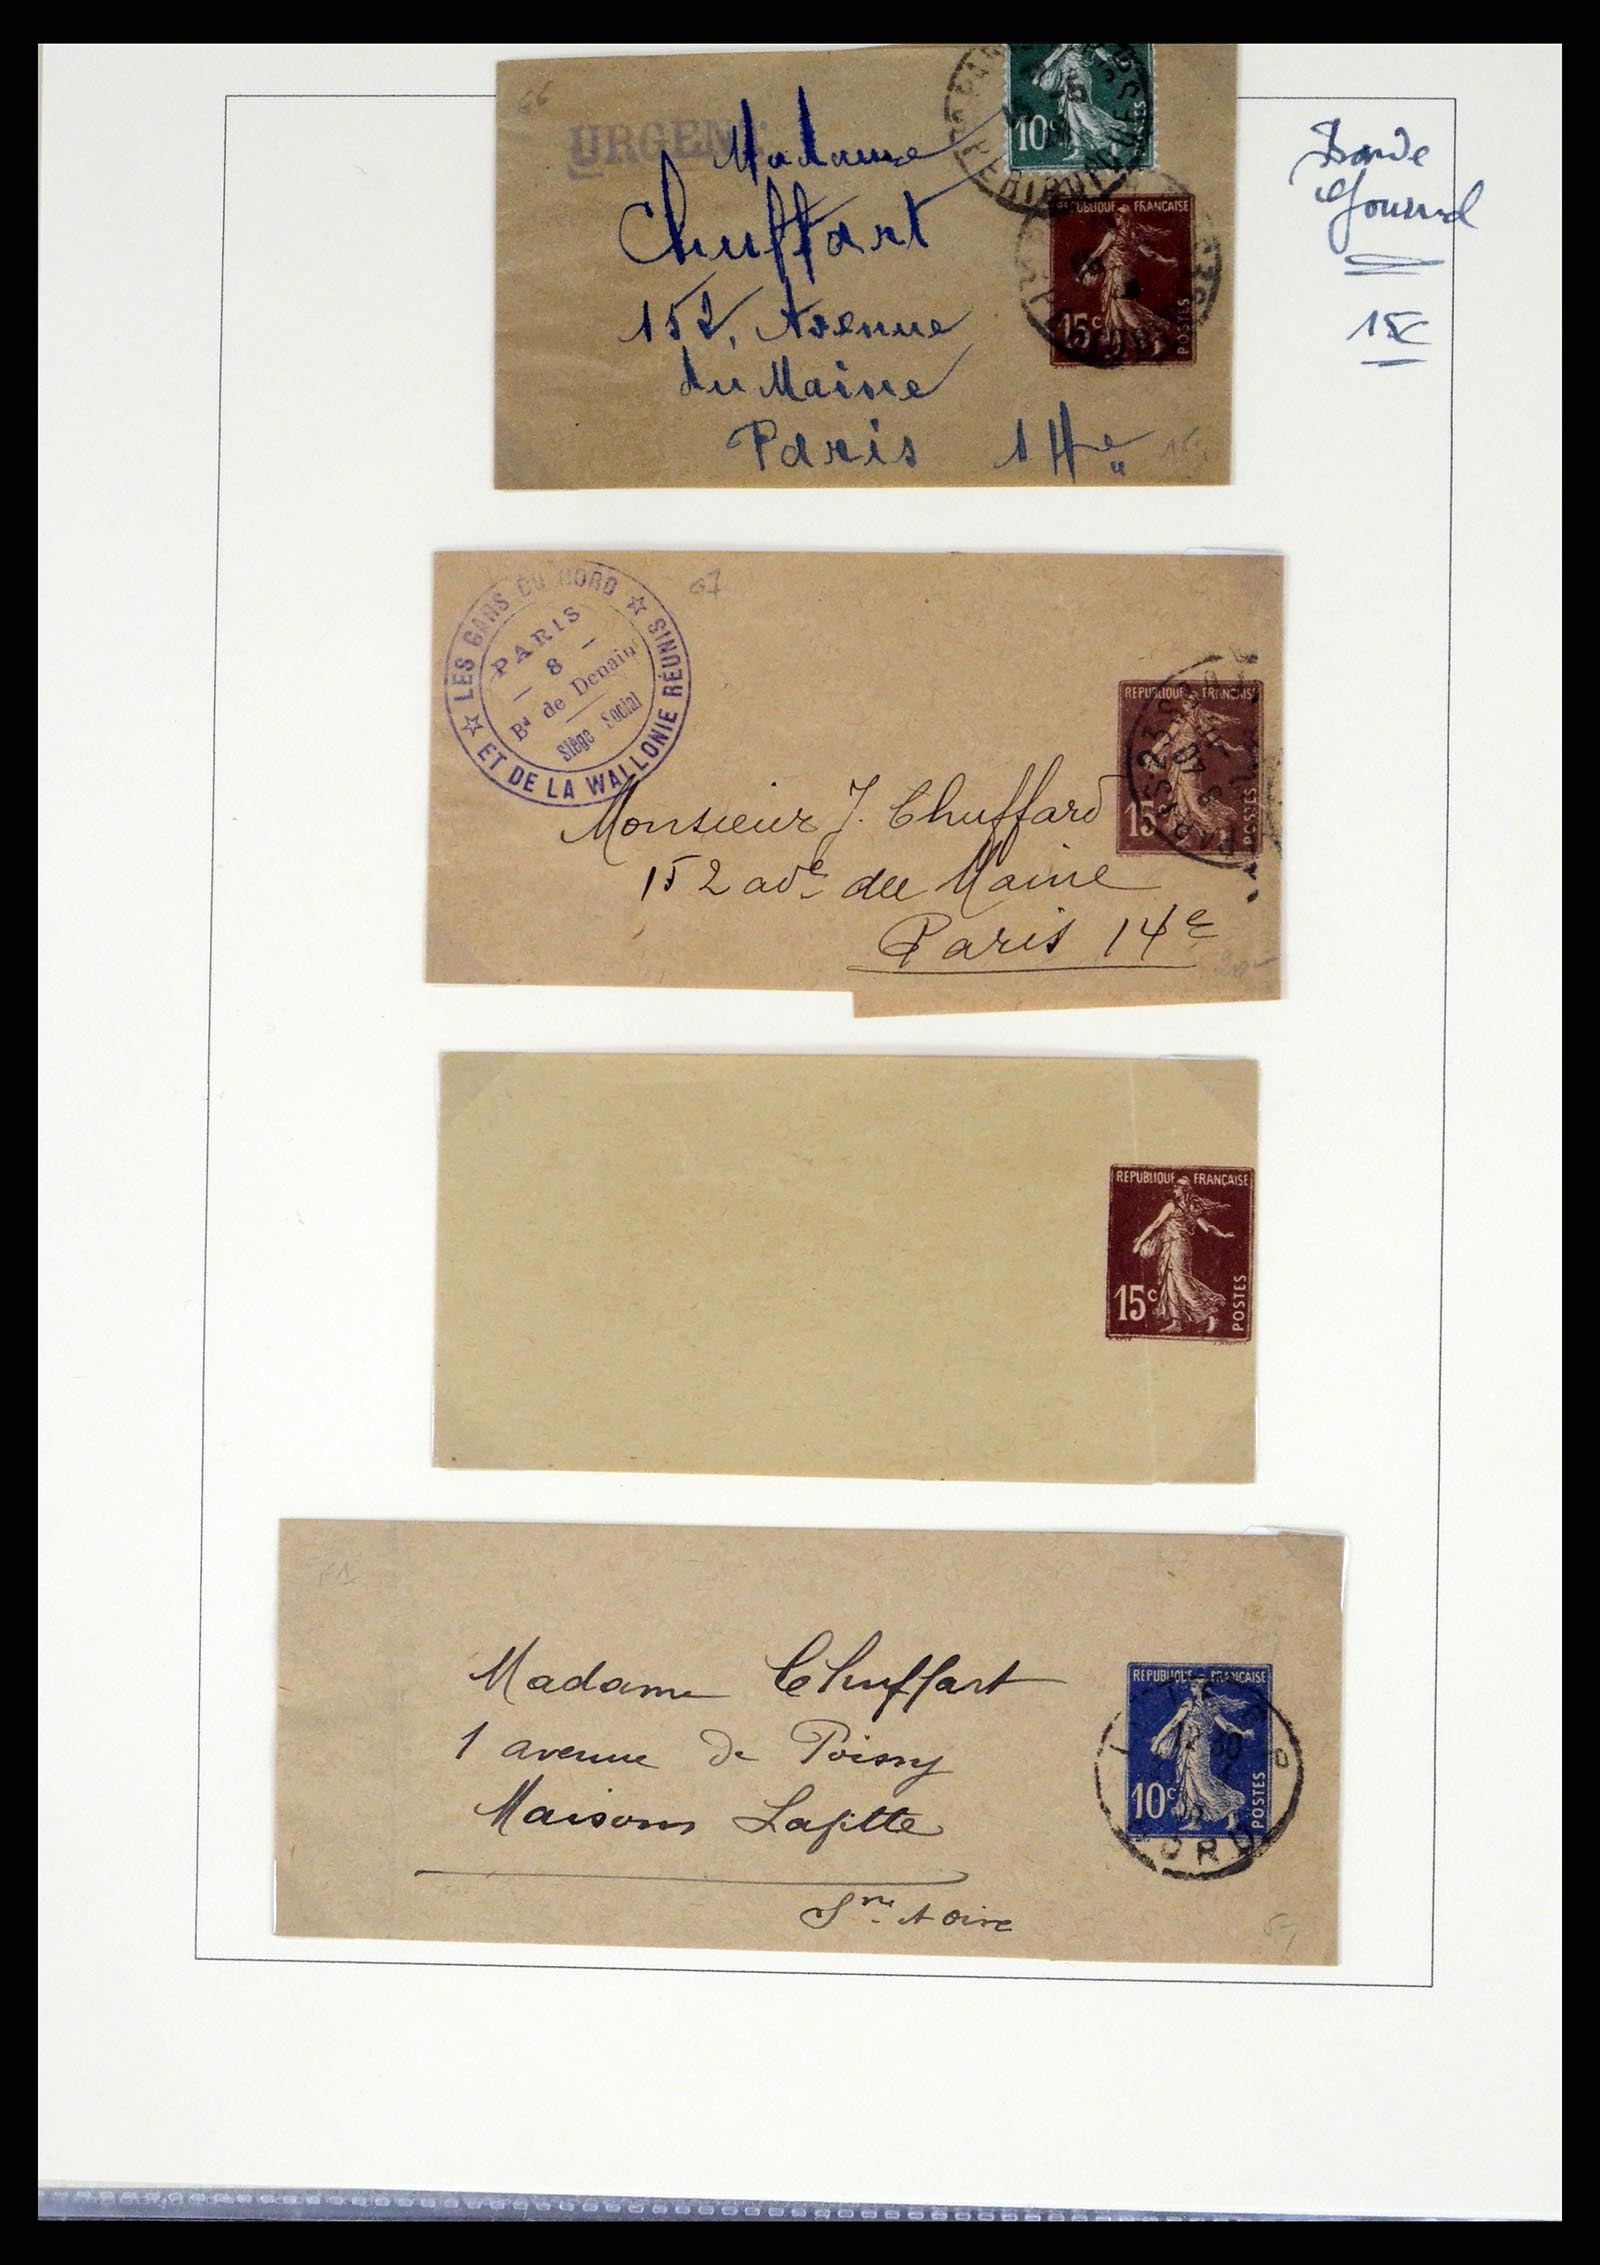 Bande
Journal
15c
66
URGENT
10c
POSTES
PERIODIQUES
Madame
Chuffart
152, Avenue
du Maine
Paris 14e
REPUBLIQUE FRANÇAISE
15c
POSTES
67
LES GARS DU NORD
ET DE LA WALLONIE RÉUNIS
PARIS
8
Bd de Denain
Siège Social
REPUBLIQUE FRANÇAISE
15c
POSTES
Monsieur J. Chuffard
152 ave du Maine
Paris 14e
REPUBLIQUE FRANÇAISE
15c
POSTES
Madame Chuffart
1 avenue de Poissy
Maisons Lafitte
Sne & Oise
REPUBLIQUE FRANÇAISE
10c
POSTES